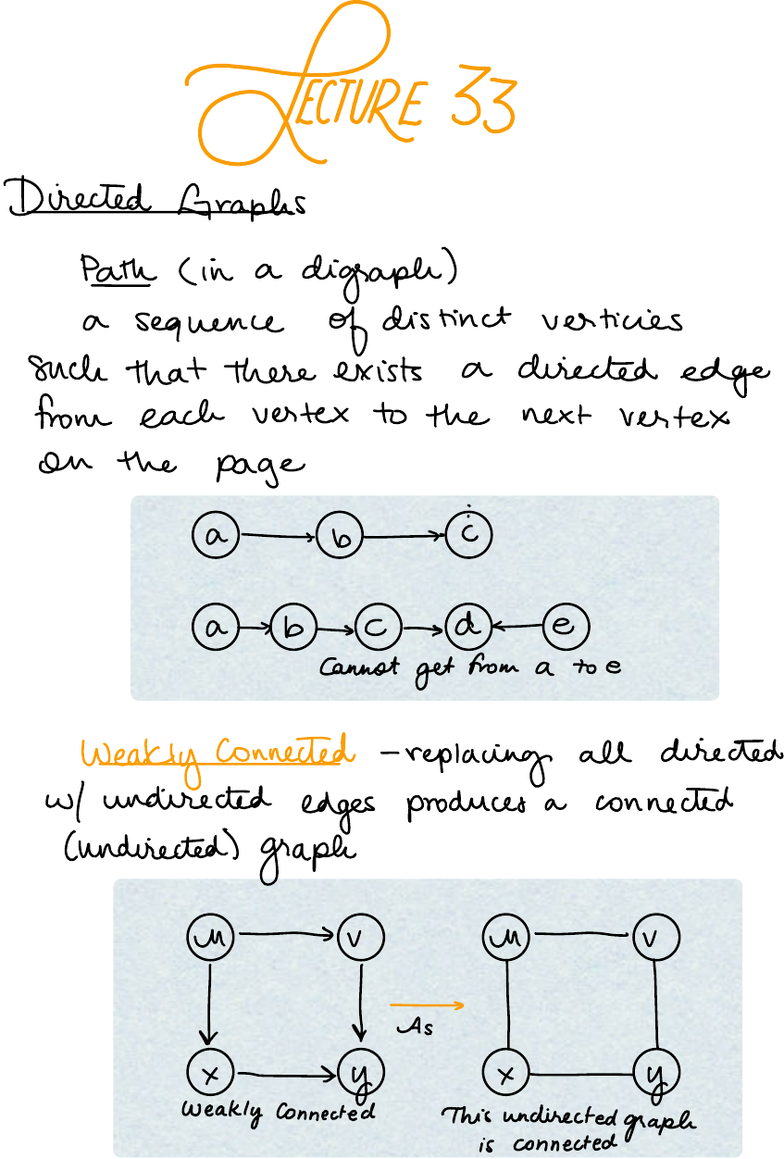 LECTURE 33
Directed Graphs
Path (in a digraph)
a sequence of distinct verticies
such that there exists a directed edge
from each vertex to the next vertex
on the page
a b c
a b c d e
Cannot get from a to e
Weakly Connected - replacing all directed
w/ undirected edges produces a connected
(undirected) graph
u v u v
As
x y x y
Weakly Connected
This undirected graph
is connected